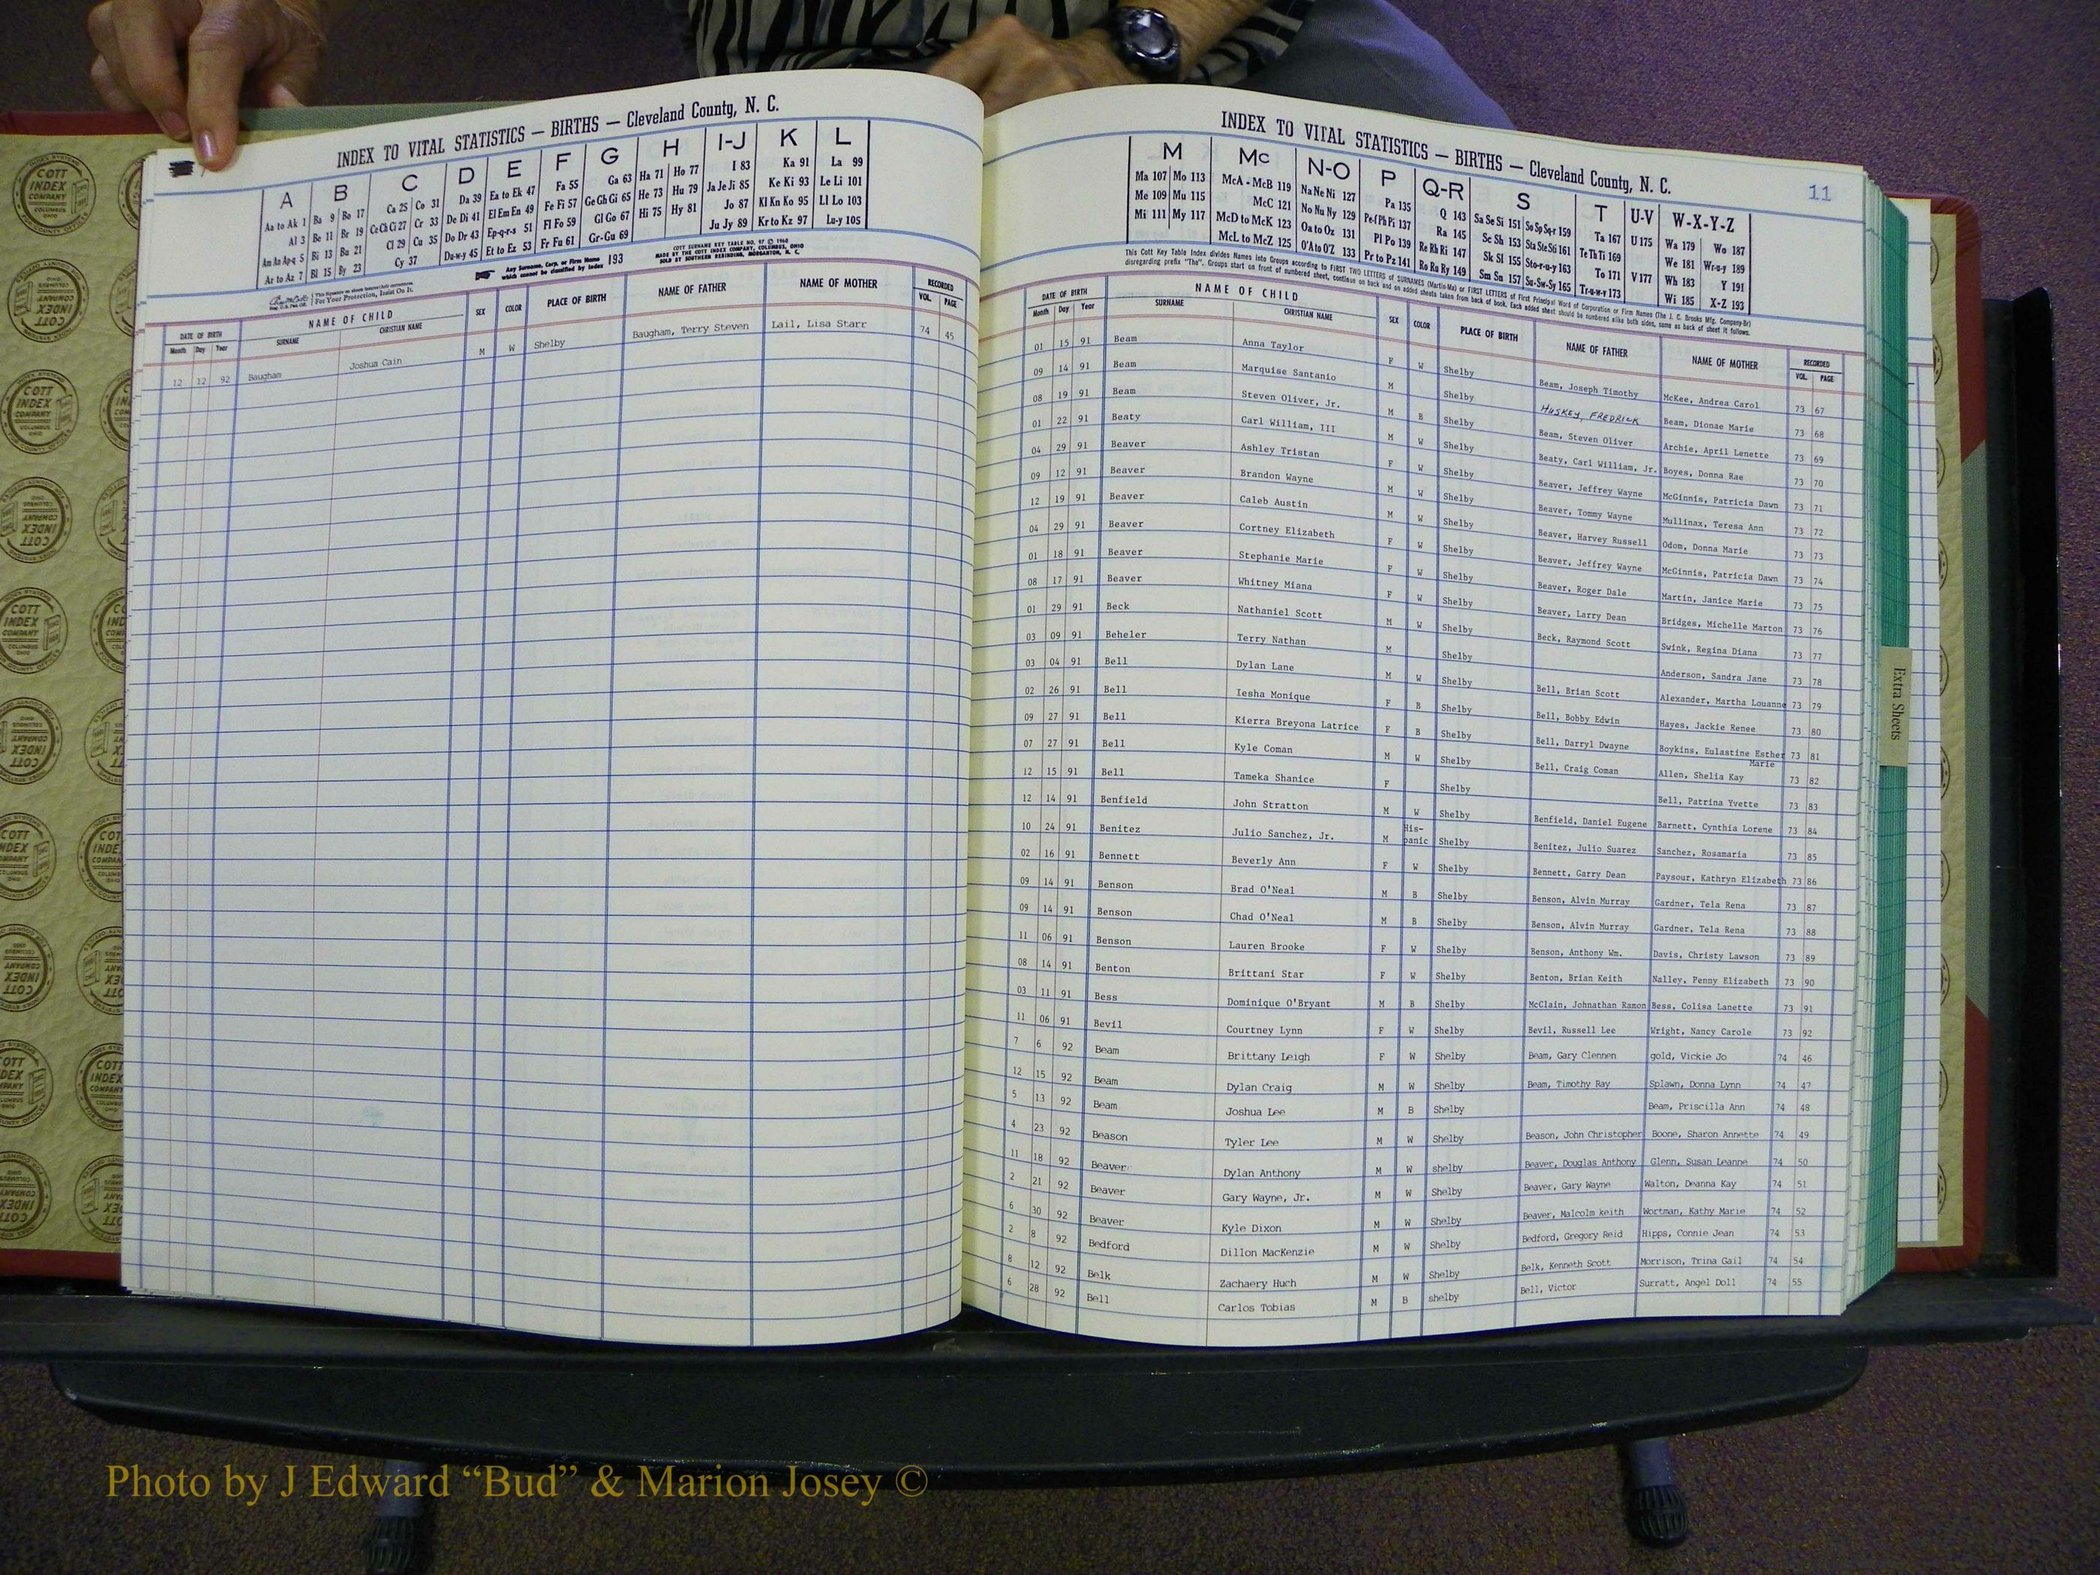 INDEX TO VITAL STATISTICS — BIRTHS — Cleveland County, N. C.
A B C D E F G H I-J K L
Aa to Ak 1 Ba 9 Bo 17 Ca 25 Co 31 Da 39 Ea to Ek 47 Fa 55 Ga 63 Ha 71 Ho 77 I 83 Ka 91 La 99
Al 3 Be 11 Br 19 Ce Ch Ci 27 Cr 33 De Di 41 El Em En 49 Fe Fi 57 Ge Gh Gi 65 He 73 Hu 79 Ja Je Ji 85 Ke Ki 93 Le Li 101
Am An Ap-q 5 Bi 13 Bu 21 Cl 29 Cu 35 Do Dr 43 Ep-q-r-s 51 Fl Fo 59 Gl Go 67 Hi 75 Hy 81 Jo 87 Kl Kn Ko 95 Ll Lo 103
Ar to Az 7 Bl 15 By 23 Cy 37 Du-w-y 45 Et to Ez 53 Fr Fu 61 Gr-Gu 69 Ju Jy 89 Kr to Kz 97 Lu-y 105
Any Surname, Corp. or Firm Name which cannot be classified by Index 193
COTT SURNAME KEY TABLE NO. 97 © 1960
MADE BY THE COTT INDEX COMPANY, COLUMBUS, OHIO
SOLD BY SOUTHERN REBINDING, MORGANTON, N. C.
For Your Protection, Insist On It.
DATE OF BIRTH NAME OF CHILD SEX COLOR PLACE OF BIRTH NAME OF FATHER NAME OF MOTHER RECORDED
Month Day Year SURNAME CHRISTIAN NAME VOL. PAGE
12 12 92 Baugham Joshua Cain M W Shelby Baugham, Terry Steven Lail, Lisa Starr 74 45
INDEX TO VITAL STATISTICS — BIRTHS — Cleveland County, N. C.
11
M Mc N-O P Q-R S T U-V W-X-Y-Z
Ma 107 Mo 113 McA - McB 119 Na Ne Ni 127 Pa 135 Q 143 Sa Se Si 151 So Sp Sq-r 159 Ta 167 U 175 Wa 179 Wo 187
Me 109 Mu 115 McC 121 No Nu Ny 129 Pe-f Ph Pi 137 Ra 145 Sc Sh 153 Sta Ste Sti 161 Te Th Ti 169 We 181 Wr-u-y 189
Mi 111 My 117 McD to McK 123 Oa to Oz 131 Pl Po 139 Re Rh Ri 147 Sk Sl 155 Sto-r-u-y 163 To 171 V 177 Wh 183 Y 191
McL to McZ 125 O'A to O'Z 133 Pr to Pz 141 Ro Ru Ry 149 Sm Sn 157 Su-Sw-Sy 165 Tr-u-w-y 173 Wi 185 X-Z 193
This Cott Key Table Index divides Names into Groups according to FIRST TWO LETTERS of SURNAMES (Martin-Ma) or FIRST LETTERS of First Principal Word of Corporation or Firm Names (The J. C. Brooks Mfg. Company-Br)
disregarding prefix "The". Groups start on front of numbered sheet, continue on back and on added sheets taken from back of book. Each added sheet should be numbered alike both sides, same as back of sheet it follows.
DATE OF BIRTH NAME OF CHILD SEX COLOR PLACE OF BIRTH NAME OF FATHER NAME OF MOTHER RECORDED
Month Day Year SURNAME CHRISTIAN NAME VOL. PAGE
01 15 91 Beam Anna Taylor F W Shelby Beam, Joseph Timothy McKee, Andrea Carol 73 67
09 14 91 Beam Marquise Santanio M Shelby HUSKEY, FREDRICK Beam, Dionae Marie 73 68
08 19 91 Beam Steven Oliver, Jr. M B Shelby Beam, Steven Oliver Archie, April Lenette 73 69
01 22 91 Beaty Carl William, III M W Shelby Beaty, Carl William, Jr. Boyes, Donna Rae 73 70
04 29 91 Beaver Ashley Tristan F W Shelby Beaver, Jeffrey Wayne McGinnis, Patricia Dawn 73 71
09 12 91 Beaver Brandon Wayne M W Shelby Beaver, Tommy Wayne Mullinax, Teresa Ann 73 72
12 19 91 Beaver Caleb Austin M W Shelby Beaver, Harvey Russell Odom, Donna Marie 73 73
04 29 91 Beaver Cortney Elizabeth F W Shelby Beaver, Jeffrey Wayne McGinnis, Patricia Dawn 73 74
01 18 91 Beaver Stephanie Marie F W Shelby Beaver, Roger Dale Martin, Janice Marie 73 75
08 17 91 Beaver Whitney Miana F W Shelby Beaver, Larry Dean Bridges, Michelle Marton 73 76
01 29 91 Beck Nathaniel Scott M W Shelby Beck, Raymond Scott Swink, Regina Diana 73 77
03 09 91 Beheler Terry Nathan M Shelby Anderson, Sandra Jane 73 78
03 04 91 Bell Dylan Lane M W Shelby Bell, Brian Scott Alexander, Martha Louanne 73 79
02 26 91 Bell Iesha Monique F B Shelby Bell, Bobby Edwin Hayes, Jackie Renee 73 80
09 27 91 Bell Kierra Breyona Latrice F B Shelby Bell, Darryl Dwayne Boykins, Eulastine Esther Marie 73 81
07 27 91 Bell Kyle Coman M W Shelby Bell, Craig Coman Allen, Shelia Kay 73 82
12 15 91 Bell Tameka Shanice F Shelby Bell, Patrina Yvette 73 83
12 14 91 Benfield John Stratton M W Shelby Benfield, Daniel Eugene Barnett, Cynthia Lorene 73 84
10 24 91 Benitez Julio Sanchez, Jr. M His-panic Shelby Benitez, Julio Suarez Sanchez, Rosamaria 73 85
02 16 91 Bennett Beverly Ann F W Shelby Bennett, Garry Dean Paysour, Kathryn Elizabeth 73 86
09 14 91 Benson Brad O'Neal M B Shelby Benson, Alvin Murray Gardner, Tela Rena 73 87
09 14 91 Benson Chad O'Neal M B Shelby Benson, Alvin Murray Gardner, Tela Rena 73 88
11 06 91 Benson Lauren Brooke F W Shelby Benson, Anthony Wm. Davis, Christy Lawson 73 89
08 14 91 Benton Brittani Star F W Shelby Benton, Brian Keith Nalley, Penny Elizabeth 73 90
03 11 91 Bess Dominique O'Bryant M B Shelby McClain, Johnathan Ramon Bess, Colisa Lanette 73 91
11 06 91 Bevil Courtney Lynn F W Shelby Bevil, Russell Lee Wright, Nancy Carole 73 92
7 6 92 Beam Brittany Leigh F W Shelby Beam, Gary Clennen gold, Vickie Jo 74 46
12 15 92 Beam Dylan Craig M W Shelby Beam, Timothy Ray Splawn, Donna Lynn 74 47
5 13 92 Beam Joshua Lee M B Shelby Beam, Priscilla Ann 74 48
4 23 92 Beason Tyler Lee M W Shelby Beason, John Christopher Boone, Sharon Annette 74 49
11 18 92 Beaver Dylan Anthony M W shelby Beaver, Douglas Anthony Glenn, Susan Leanne 74 50
2 21 92 Beaver Gary Wayne, Jr. M W Shelby Beaver, Gary Wayne Walton, Deanna Kay 74 51
6 30 92 Beaver Kyle Dixon M W Shelby Beaver, Malcolm keith Wortman, Kathy Marie 74 52
2 8 92 Bedford Dillon MacKenzie M W Shelby Bedford, Gregory Reid Hipps, Connie Jean 74 53
8 12 92 Belk Zachaery Huch M W Shelby Belk, Kenneth Scott Morrison, Trina Gail 74 54
6 28 92 Bell Carlos Tobias M B shelby Bell, Victor Surratt, Angel Doll 74 55
Extra Sheets
COTT INDEX COMPANY COLUMBUS OHIO
Photo by J Edward “Bud” & Marion Josey ©